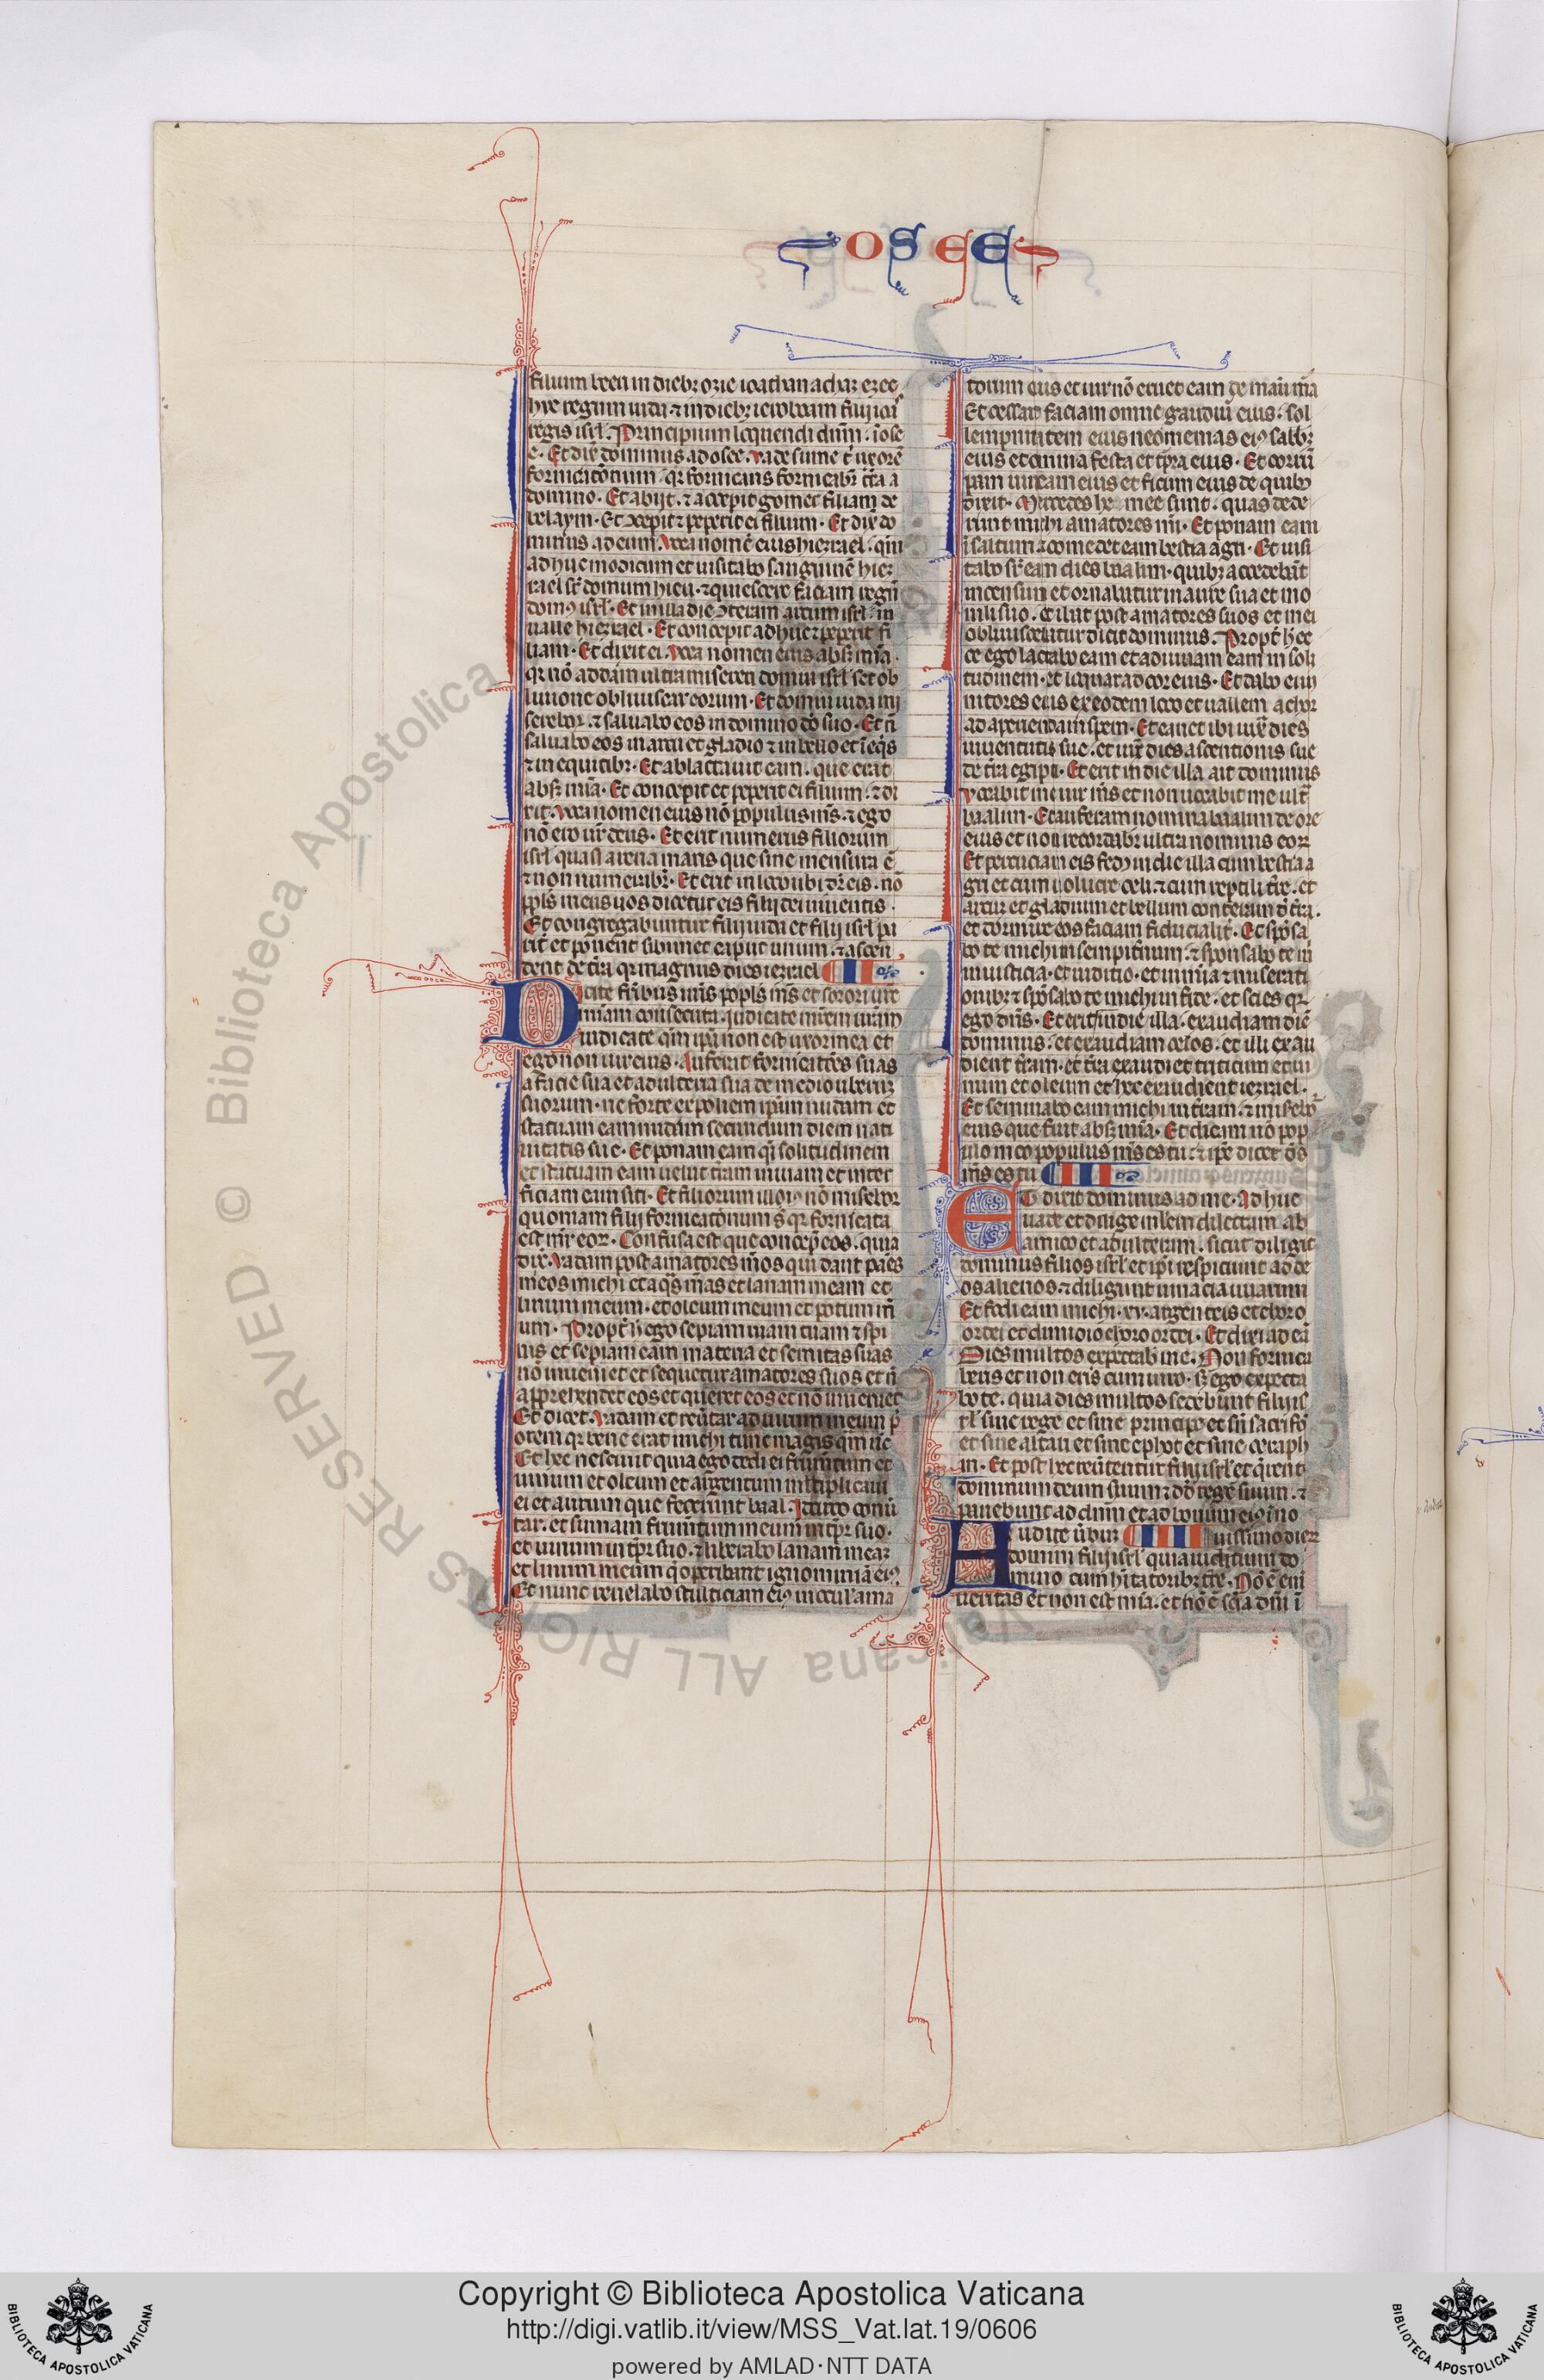 OSEE
filium beeri in diebꝫ ozie ioathan achaz ezec
hye regum iuda ⁊ in diebꝫ ieroboam filij ioas
regis isrl̕. Principium loquendi dn̄m. in ose
e. Et dix̄ dominus ad osee. vade sume t̄ uxorē
fornicatōnum. qꝛ fornicans fornicabit̄ t̄ra a
domino. Et abijt. ⁊ accepit gomer filiam de
belaym. Et ꝯcepit ⁊ peperit ei filium. Et dix̄ do
minus ad eum. Voca nomē eius hiezrael. qm̄
adhuc modicum et uisitabo sanguinē hiez
rael sr̄ domum hieu. ⁊ quiescere faciam regn̄
domꝰ isrl̕. Et in illa die ꝯteram arcum isrl̕ in
ualle hiezrael. Et concepit adhuc ⁊ peperit fi
liam. Et dixit ei. Voca nomen eius absꝫ mīa.
qꝛ nō addam ultra misereri domui isrl̕ set ob
liuione obliuiscar eorum. Et domui iuda mi
serebor. ⁊ saluabo eos in domino dō suo. Et n̄
saluabo eos in arcu et gladio ⁊ in bello et ī eq̄s
⁊ in equitibꝫ. Et ablactauit eam. que erat
absꝫ mīa. Et concepit et peperit ei filium. ⁊ di
xit. Voca nomen eius nō populus m̄s. ⁊ ego
nō ero ur̄ deus. Et erit numerus filiorum
isrl̕ quasi arena maris que sine mensura ē
⁊ non numerabit̄. Et erit in loco ubi dr̄ eis. nō
ppl̄s meus uos dicetur eis filij dei uiuentis.
Et congregabuntur filij iuda et filij isrl̕ pa
rit̄ et ponent sibimet caput unum. ⁊ ascen
dent de t̄ra qꝛ magnus dies iezrael
Dicite fr̄ibus ur̄is popl̄s m̄s et sorori ur̄e
mīam consecuta. iudicate mr̄em ur̄am
iudicate qm̄ ip̄a non est uxor mea et
ego non uir eius. Auferat fornicatōes suas
a facie sua et adulteria sua de medio uberum
suorum. ne forte expoliem ip̄am nudam et
statuam eam nudam secundum diem nati
uitatis sue. Et ponam eam q̄i solitudinem
et statuam eam uelut t̄ram inuiam et inter
ficiam eam siti. Et filiorum illiꝰ nō miserebor
quoniam filij fornicatōnum s̄t qꝛ fornicata
est mr̄ eoꝝ. Confusa est que concep̄ eos. quia
dix̄. Vadam post amatores m̄os qui dant panes
meos michi et aq̄s m̄as et lanam meam et
linum meum. et oleum meum et potum m̄
um. Propt̄ h̄ ego sepiam uiam tuam ⁊ spi
nis et sepiam eam materia et semitas suas
nō inueniet et sequetur amatores suos et n̄
apprehendet eos et queret eos et nō inueniet
Et dicet. Vadam et reūtar ad uirum meum p̄
orem qꝛ bene erat michi tunc magis qm̄ nc̄
Et hec nesciuit quia ego dedi ei frumentum et
uinum et oleum et argentum multiplicaui
ei et aurum que fecerunt baal. Idcirco conū
tar. et sumam frumentum meum in tp̄r suo.
et uinum in tp̄r suo. ⁊ liberabo lanam meam
et linum meum q̄ operibant ignominiā eiꝰ
Et nunc reuelabo stulticiam eiꝰ in ocul̕ ama
torum eius et uir nō eruet eam de manu m̄a
Et cessare faciam omne gaudiū eius. sol
lempnitatem eius neomenias eiꝰ sabbꝫ
eius et omnia festa et tp̄ra eius. Et corrū
pam uineam eius et ficum eius de quibꝰ
dixit. Mercedes he mee sunt. quas dede
runt michi amatores m̄i. Et ponam eam
ī saltum ⁊ comedet eam bestia agri. Et uisi
tabo sr̄ eam dies baalim. quibꝫ accendebāt
incensum et ornabatur inaure sua et mo
nili suo. et ibat post amatores suos et mei
obliuiscebatur dicit dominus. Propt̄ h̄ ec
ce ego lactabo eam et adducam eam in soli
tudinem. et loquar ad cor eius. Et dabo ei ui
nitores eius ex eodem loco et uallem achor
ad aperiendam spem. Et canet ibi iux̄ dies
iuuentutis sue. et iux̄ dies ascentionis sue
de t̄ra egipti. Et erit in die illa ait dominus
vocabit me uir m̄s et non uocabit me ult̄
baalim. Et auferam nomina baalim de ore
eius et non recordabit̄ ultra nominis eoꝝ
Et percuciam eis fedꝰ in die illa cum bestia a
gri et cum uolucre celi ⁊ cum reptili t̄re. et
arcum et gladium et bellum conteram d̄ t̄ra.
et dormire eos faciam fiducialit̄. Et spōsa
bo te michi in sempit̄num. ⁊ sponsabo te m̄
in iusticia. et iuditio. et in mīa ⁊ miserati
onibꝫ ⁊ spōsabo te michi in fide. et scies qꝛ
ego dn̄s. Et erit in die illa. exaudiam dic̄
dominus. et exaudiam celos. et illi exau
dient t̄ram. et t̄ra exaudiet triticum et ui
num et oleum et hec exaudient iezrael.
Et seminabo eam michi in t̄ram. ⁊ miserebō
eius que fuit absꝫ mīa. Et dicam nō pop
ulo meo populus m̄s es tu. ⁊ ip̄e dicet d̄s
m̄s es tu
Et dixit dominus ad me. Adhuc
uade et dilige mulierem dilectam ab
amico et adulteram. sicut diligit
dominus filios isrl̕ et ip̄i respiciunt ad de
os alienos. ⁊ diligunt uinacia uuarum
Et fodi eam michi. xv. argenteis et choro
ordei et dimidio choro ordei. Et dixi ad eā
Dies multos expectab̄ me. Non fornica
beris et non eris cum uiro. sꝫ ego expecta
bo te. quia dies multos sedebunt filij is
rl̕ sine rege et sine principe et sn̄ sacrifō
et sine altari et sine ephot et sine ceraph
in. Et post hec reūtentur filij isrl̕ et q̄rent
dominum deum suum ⁊ dd̄ regē suum. ⁊
pauebunt ad dn̄m et ad bonum eiꝰ ī no
uissimo dieꝝ
Audite ūbum
domini filij isrl̕ quia iuditium do
mino cum h̄itatoribꝫ t̄re. Nō ē eni
ueritas et non est mīa. et nō ē sciā dn̄i ī
© Biblioteca Apostolica Vaticana ALL RIGHTS RESERVED
Copyright © Biblioteca Apostolica Vaticana
http://digi.vatlib.it/view/MSS_Vat.lat.19/0606
powered by AMLAD·NTT DATA
BIBLIOTECA APOSTOLICA VATICANA
BIBLIOTECA APOSTOLICA VATICANA